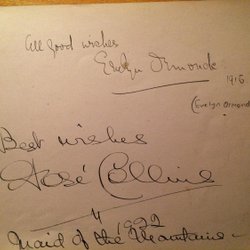 All good wishes
Evelyn Ormonde
1916
(Evelyn Ormond
Best wishes
José Collins
"1922
Maid of the Mountains"